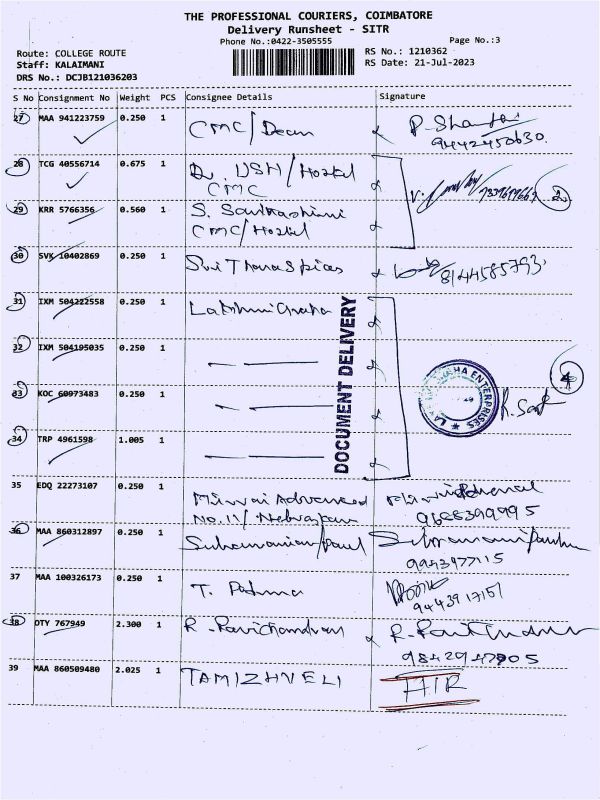 THE PROFESSIONAL COURIERS, COIMBATORE
Delivery Runsheet - SITR
Phone No.:0422-3505555
Page No.:3
Route: COLLEGE ROUTE
Staff: KALAIMANI
DRS No.: DCJB121036203
RS No.: 1210362
RS Date: 21-Jul-2023
S No Consignment No Weight PCS Consignee Details Signature
27 MAA 941223759 0.250 1 CMC/Dean
9442450630.
28 TCG 40556714 0.675 1 Dr. USH/Hostel
CMC
2
29 KRR 5766356 0.560 1 S.
CMC/Hostel
30 SVK 10402869 0.250 1 Sri Thana Spices 8144585793.
31 IXM 504222558 0.250 1 Lakshmi Graha
32 IXM 504195035 0.250 1
DOCUMENT DELIVERY
4
33 KOC 60973483 0.250 1
ENTERPRISES
34 TRP 4961598 1.005 1
35 EDQ 22273107 0.250 1 Advanced
No.11/
36 MAA 860312897 0.250 1 Subramanian/Paul
9943977115
37 MAA 100326173 0.250 1 T. Padma
9443917151
38 OTY 767949 2.300 1 R. Ravichandran
9842947805
39 MAA 860509480 2.025 1 TAMIZHVELI